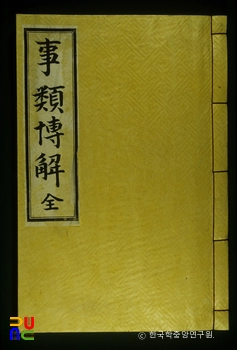 事類博解 全
PUBC
© 한국학중앙연구원